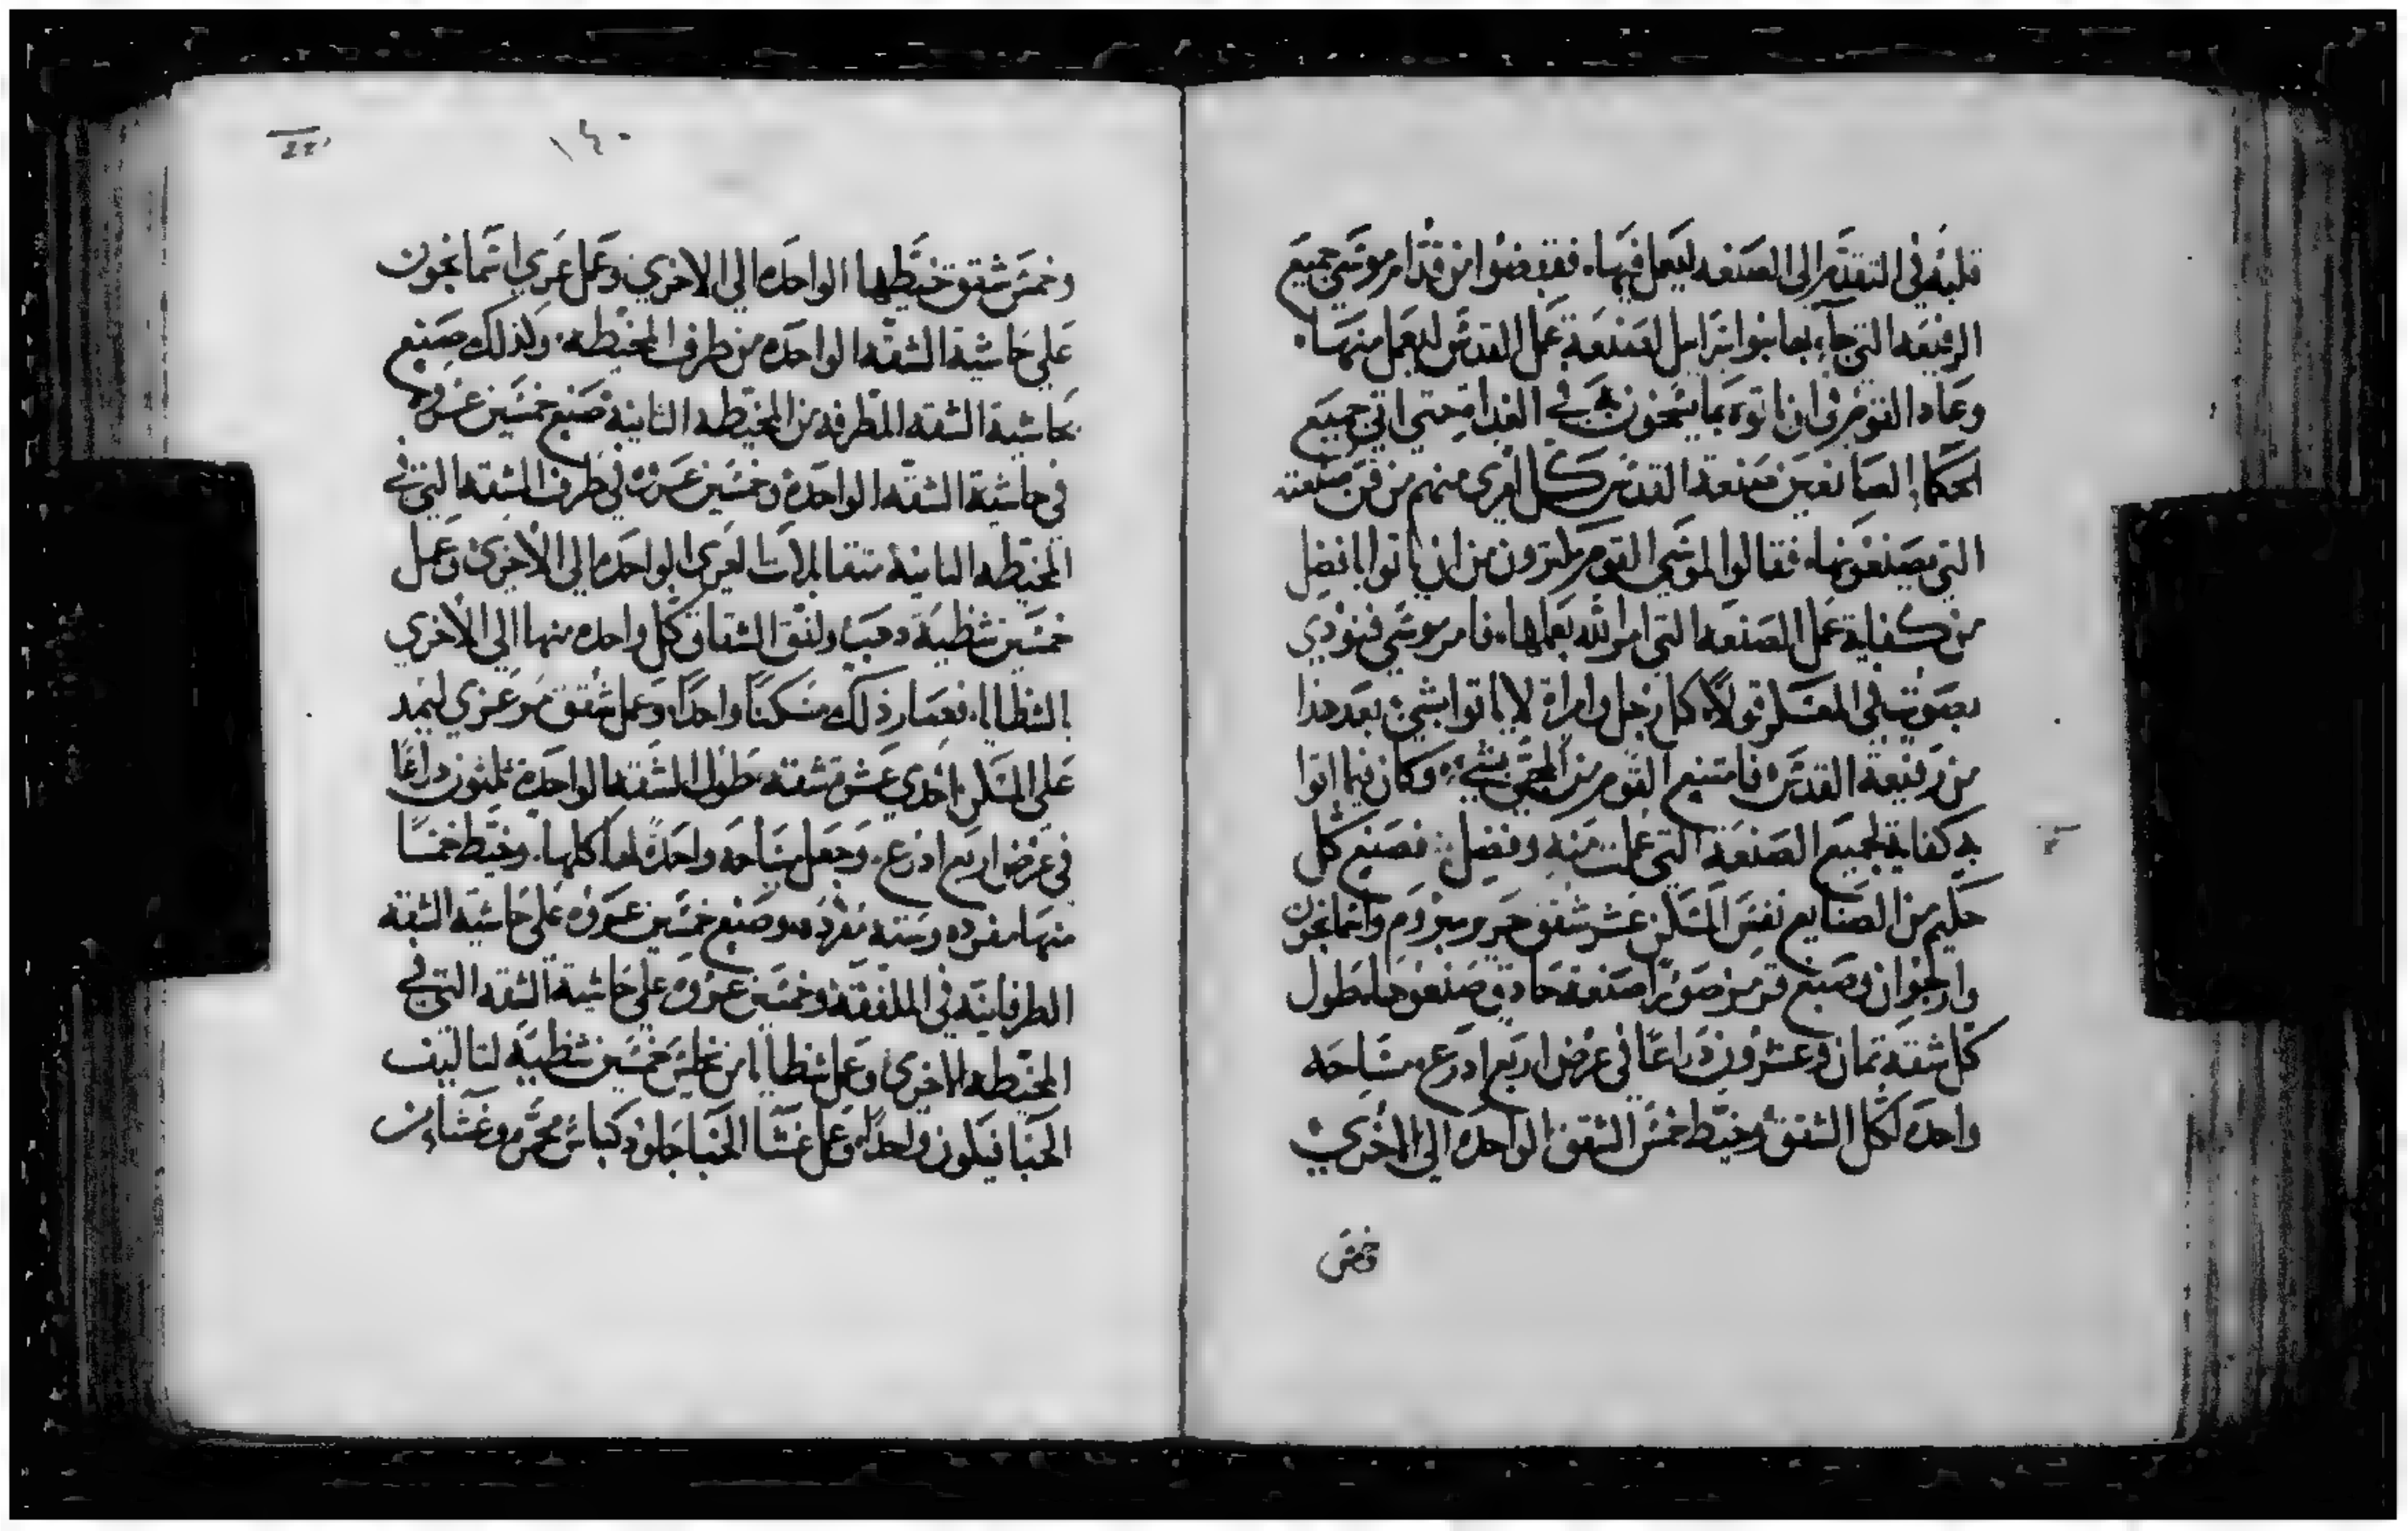 قلبه في التقدم الى الصنعه ليعمل فيها. فقبضوا من قدام موسي جميع
الرفيعه التي جآء بها بنوا اسرايل لصنعة عمل القدس ليعمل منها.
وعاد القوم في ان ياتوه بما يسمحون به في الغداه حتي اتي جميع
الحكما الصانعين صنعة القدس كل امرى منهم من فن صنعته
التي يصنعونها. فقالوا لموسي القوم مكثرون من ان ياتوا بافضل
من كفاية عمل الصنعه التي امر الله بعملها. فامر موسي فنودي
بصوت في المعسكر قولاً كل رجل وامراة لا ياتوا بشيء بعد هذا
من رفيعة القدس فامتنع القوم من المجي بشيء وكان فيما اتوا
به كفاية لجميع الصنعة التي عملت منه وفضل فصنع كل
حكيم من الصنايع نفس المسكن عشر شقق حرير مبروم واسمانجون
وارجوان وصبغ قرمز صورًا صنعة حاذق صنعوها طول
كل شقة ثمان وعشرون ذراعًا في عرض اربع اذرع مساحه
واحده لكل الشقق وخيط خمس الشقق الواحده الى الاخري
وخمس
١٤٠
وخمس شقق خيطها الواحده الي الاخري وعمل عري اسمانجون
علي حاشية الشقه الواحده من طرف المخيطه. وكذلك صنع
بحاشية الشقه المطرفه من المخيطه الثانية صنع خمسين عروه
في حاشية الشقه الواحدة وخمسين عروة في طرف الشقه التي في
المخيطه الثانية متقابلات العري الواحده الي الاخرى وعمل
خمسين شظية دهب ولفق الشقاق كل واحده منها الي الاخري
بالشظايا. فصار ذلك مسكنًا واحدًا وعمل شقق مرعزي ليمد
علي المسكن احدي عشر شقه طول الشقه الواحدة ثلثون ذراعًا
في عرض اربع اذرع. وجعل مساحه واحدة لها كلها. وخيط خمسًا
منها مفرده وسته مفرده وصنع خمسين عروه علي حاشية الشقة
الطرفانيه في الملفقة وخمسين عروة علي حاشية الشقه التي في
المخيطه الاخرى وعمل شظايا من نحاس خمسين شظيه لتاليف
الخبا فيكون واحدًا وعمل غشا الخبا جلود كباش محمره وغشاء من